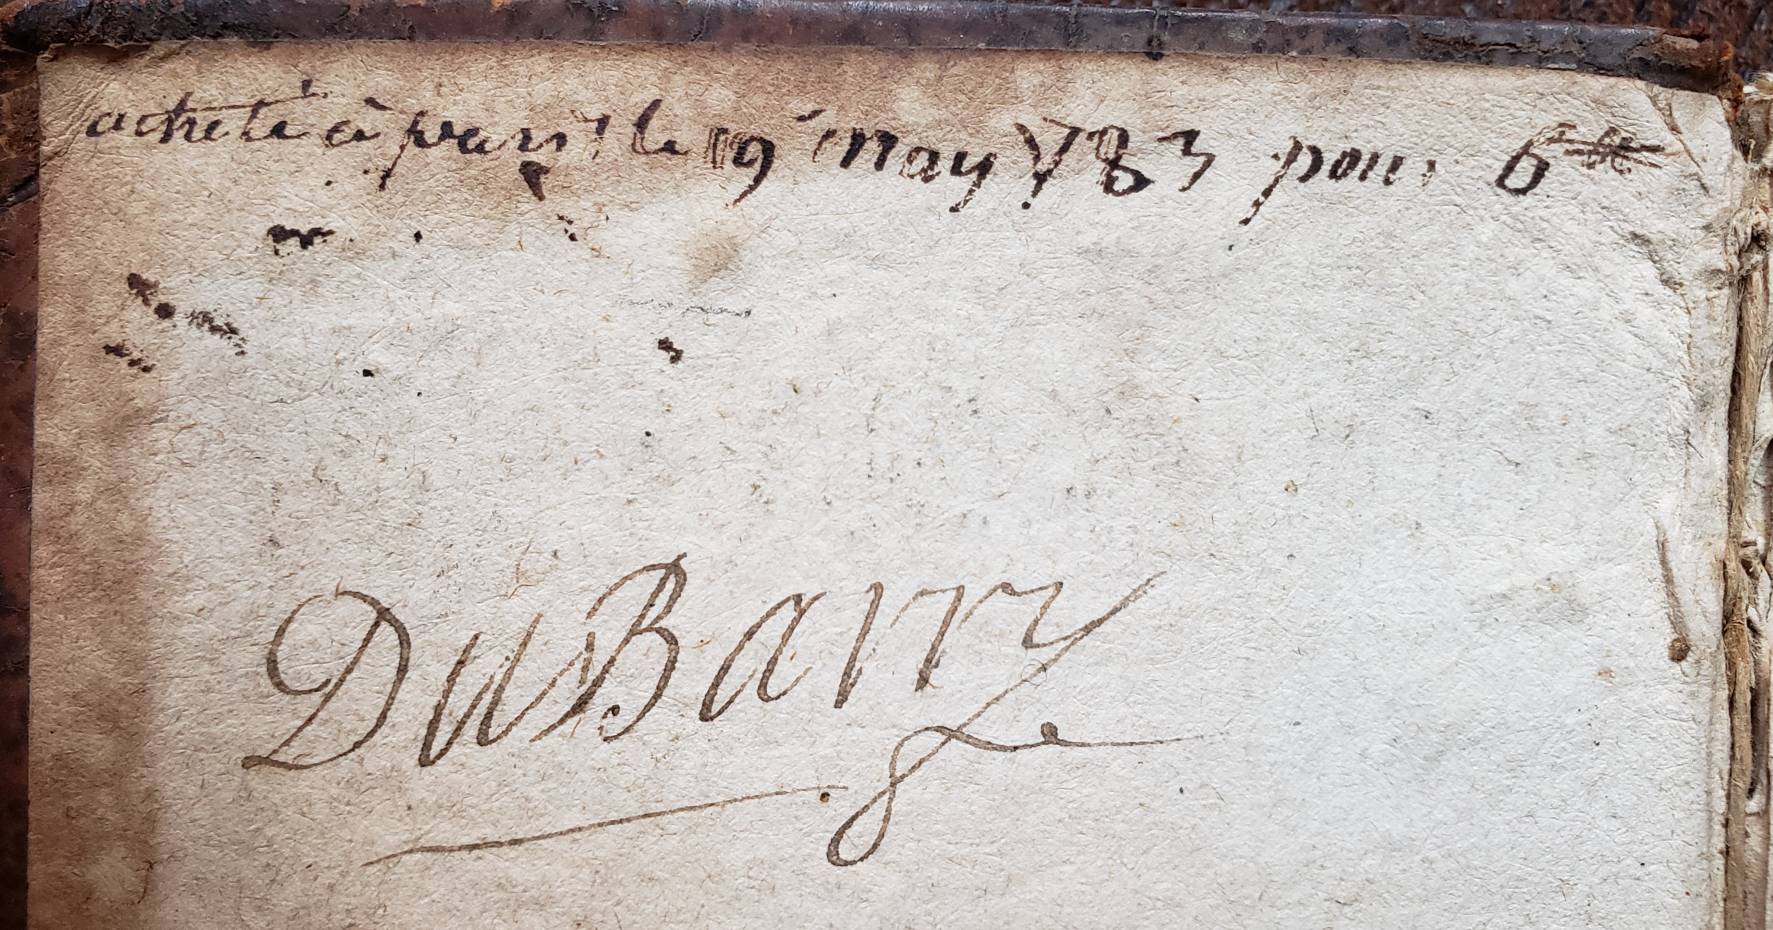 acheté à paris le 19 may 1783 pour 6 ₶
DuBarry